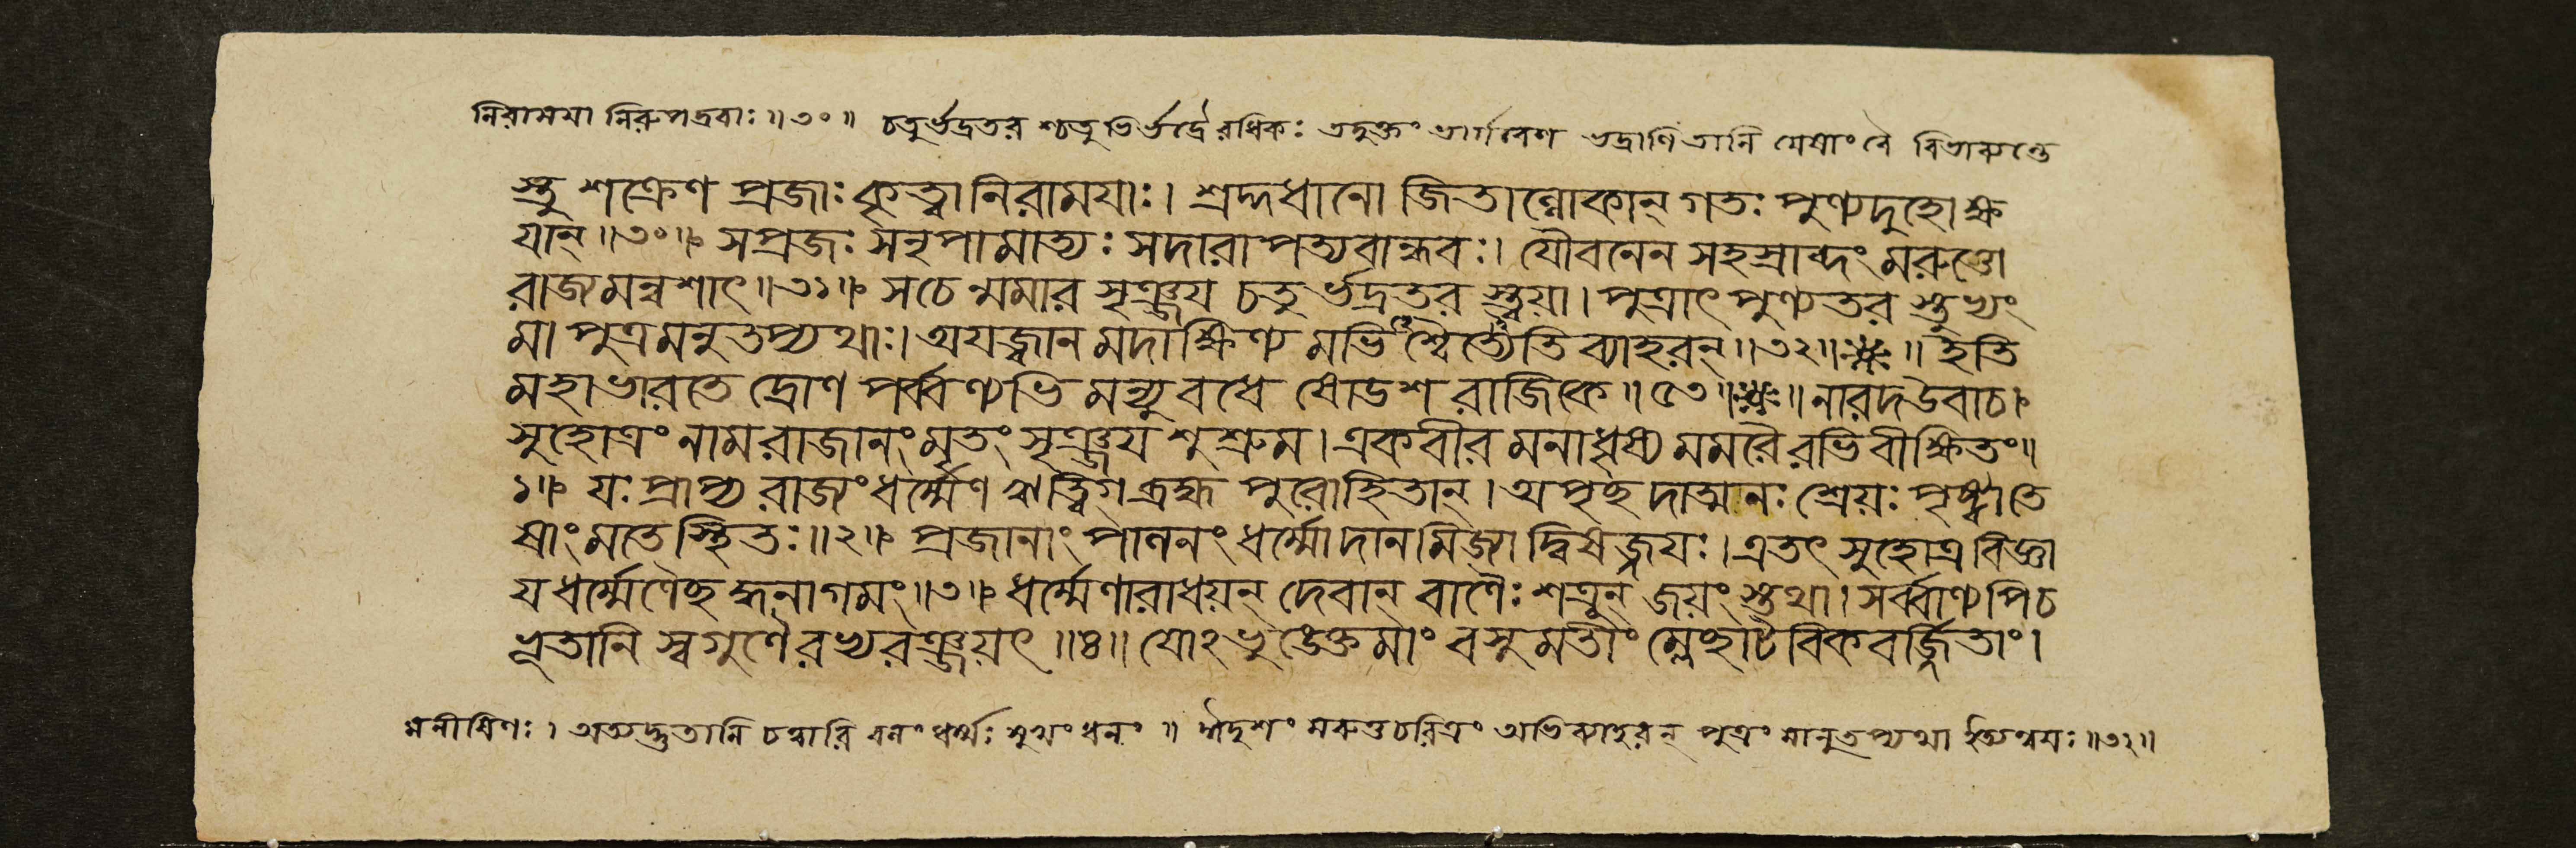 নিরাময়া নিরুপদ্রবাঃ ॥৩০॥ চতুর্ভদ্রতর শ্চতুর্ভির্ভদ্রৈরধিকঃ তদুক্তং ভদ্রাণি তানি যেষাং বৈ
স্তু শক্রেণ প্রজাঃ কৃত্বা নিরাময়াঃ। শ্রদ্দধানো জিতাল্লোকান্ গতঃ পুণ্যদুহোক্ষ
যান্॥৩০॥ সপ্রজঃ সনৃপামাত্যঃ সদারাপত্যবান্ধবঃ। যৌবনেন সহস্রাব্দং মরুত্তো
রাজ্যমন্বশাৎ॥৩১॥ স চেন্মমার সৃঞ্জয় চতুর্ভদ্রতর স্ত্বয়া। পুত্রাৎ পুণ্যতর স্তুভ্যং
মা পুত্রমনুতপ্যথাঃ। অযজ্বানমদাক্ষিণ্যমভি শ্বৈত্যেতি ব্যাহরন্॥৩২॥ ॥ ইতি
মহাভারতে দ্রোণপর্ব্বণ্যভিমন্যুবধে ষোডশরাজিকে॥৫৩॥ ॥ নারদউবাচ।
সুহোত্রং নাম রাজানং মৃতং সৃঞ্জয় শুশ্রুম। একবীরমনাধৃষ্যমমরৈরভিবীক্ষিতং॥
১॥ যঃ প্রাপ্য রাজ্যং ধর্ম্মেণ ঋত্বিগ্ব্রহ্মপুরোহিতান্। অপৃছদাত্মনঃ শ্রেয়ঃ পৃষ্ট্বা তে
ষাং মতে স্থিতঃ॥২॥ প্রজানাং পালনং ধর্ম্মো দানমিজ্যা দ্বিষজ্জয়ঃ। এতৎ সুহোত্র বিজ্ঞা
য ধর্ম্মেণৈছদ্ধনাগমং॥৩॥ ধর্ম্মেণারাধয়ন্ দেবান্ বাণৈঃ শত্রূন্ জয়ং স্তথা। সর্ব্বাণ্যপি চ
ভূতানি স্বগুণৈরপ্যরঞ্জয়ৎ॥৪॥ যোঽভুঙ্ক্তেমাং বসুমতীং ম্লেছাটবিকবর্জ্জিতাং।
মনীষিণঃ। অত্যদ্ভুতানি চত্বারি বলং ধর্ম্মঃ সুখং ধনং॥ ঈদৃশং মরুত্তচরিত্রং অভিব্যাহরন্ পুত্রং মানুতপ্যথা ইত্যন্বয়ঃ॥৩২॥